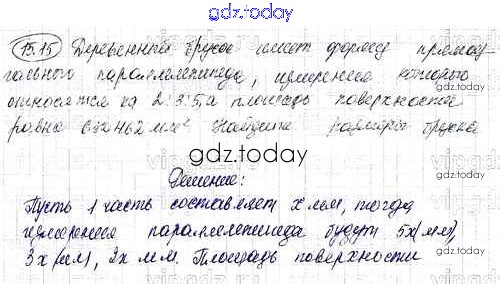 gdz.today
15.15 Деревянный брусок имеет форму прямоу
гольного параллелепипеда, измерения которого
относятся ка 2:3:5, а площадь поверхности
равна мм² Найдите размеры бруска
gdz.today
Решение:
Пусть 1 часть составляет x мм, тогда
измерения параллелепипеда будут 5x(мм),
3x(мм), 2x мм. Площадь поверхности
gdz.today